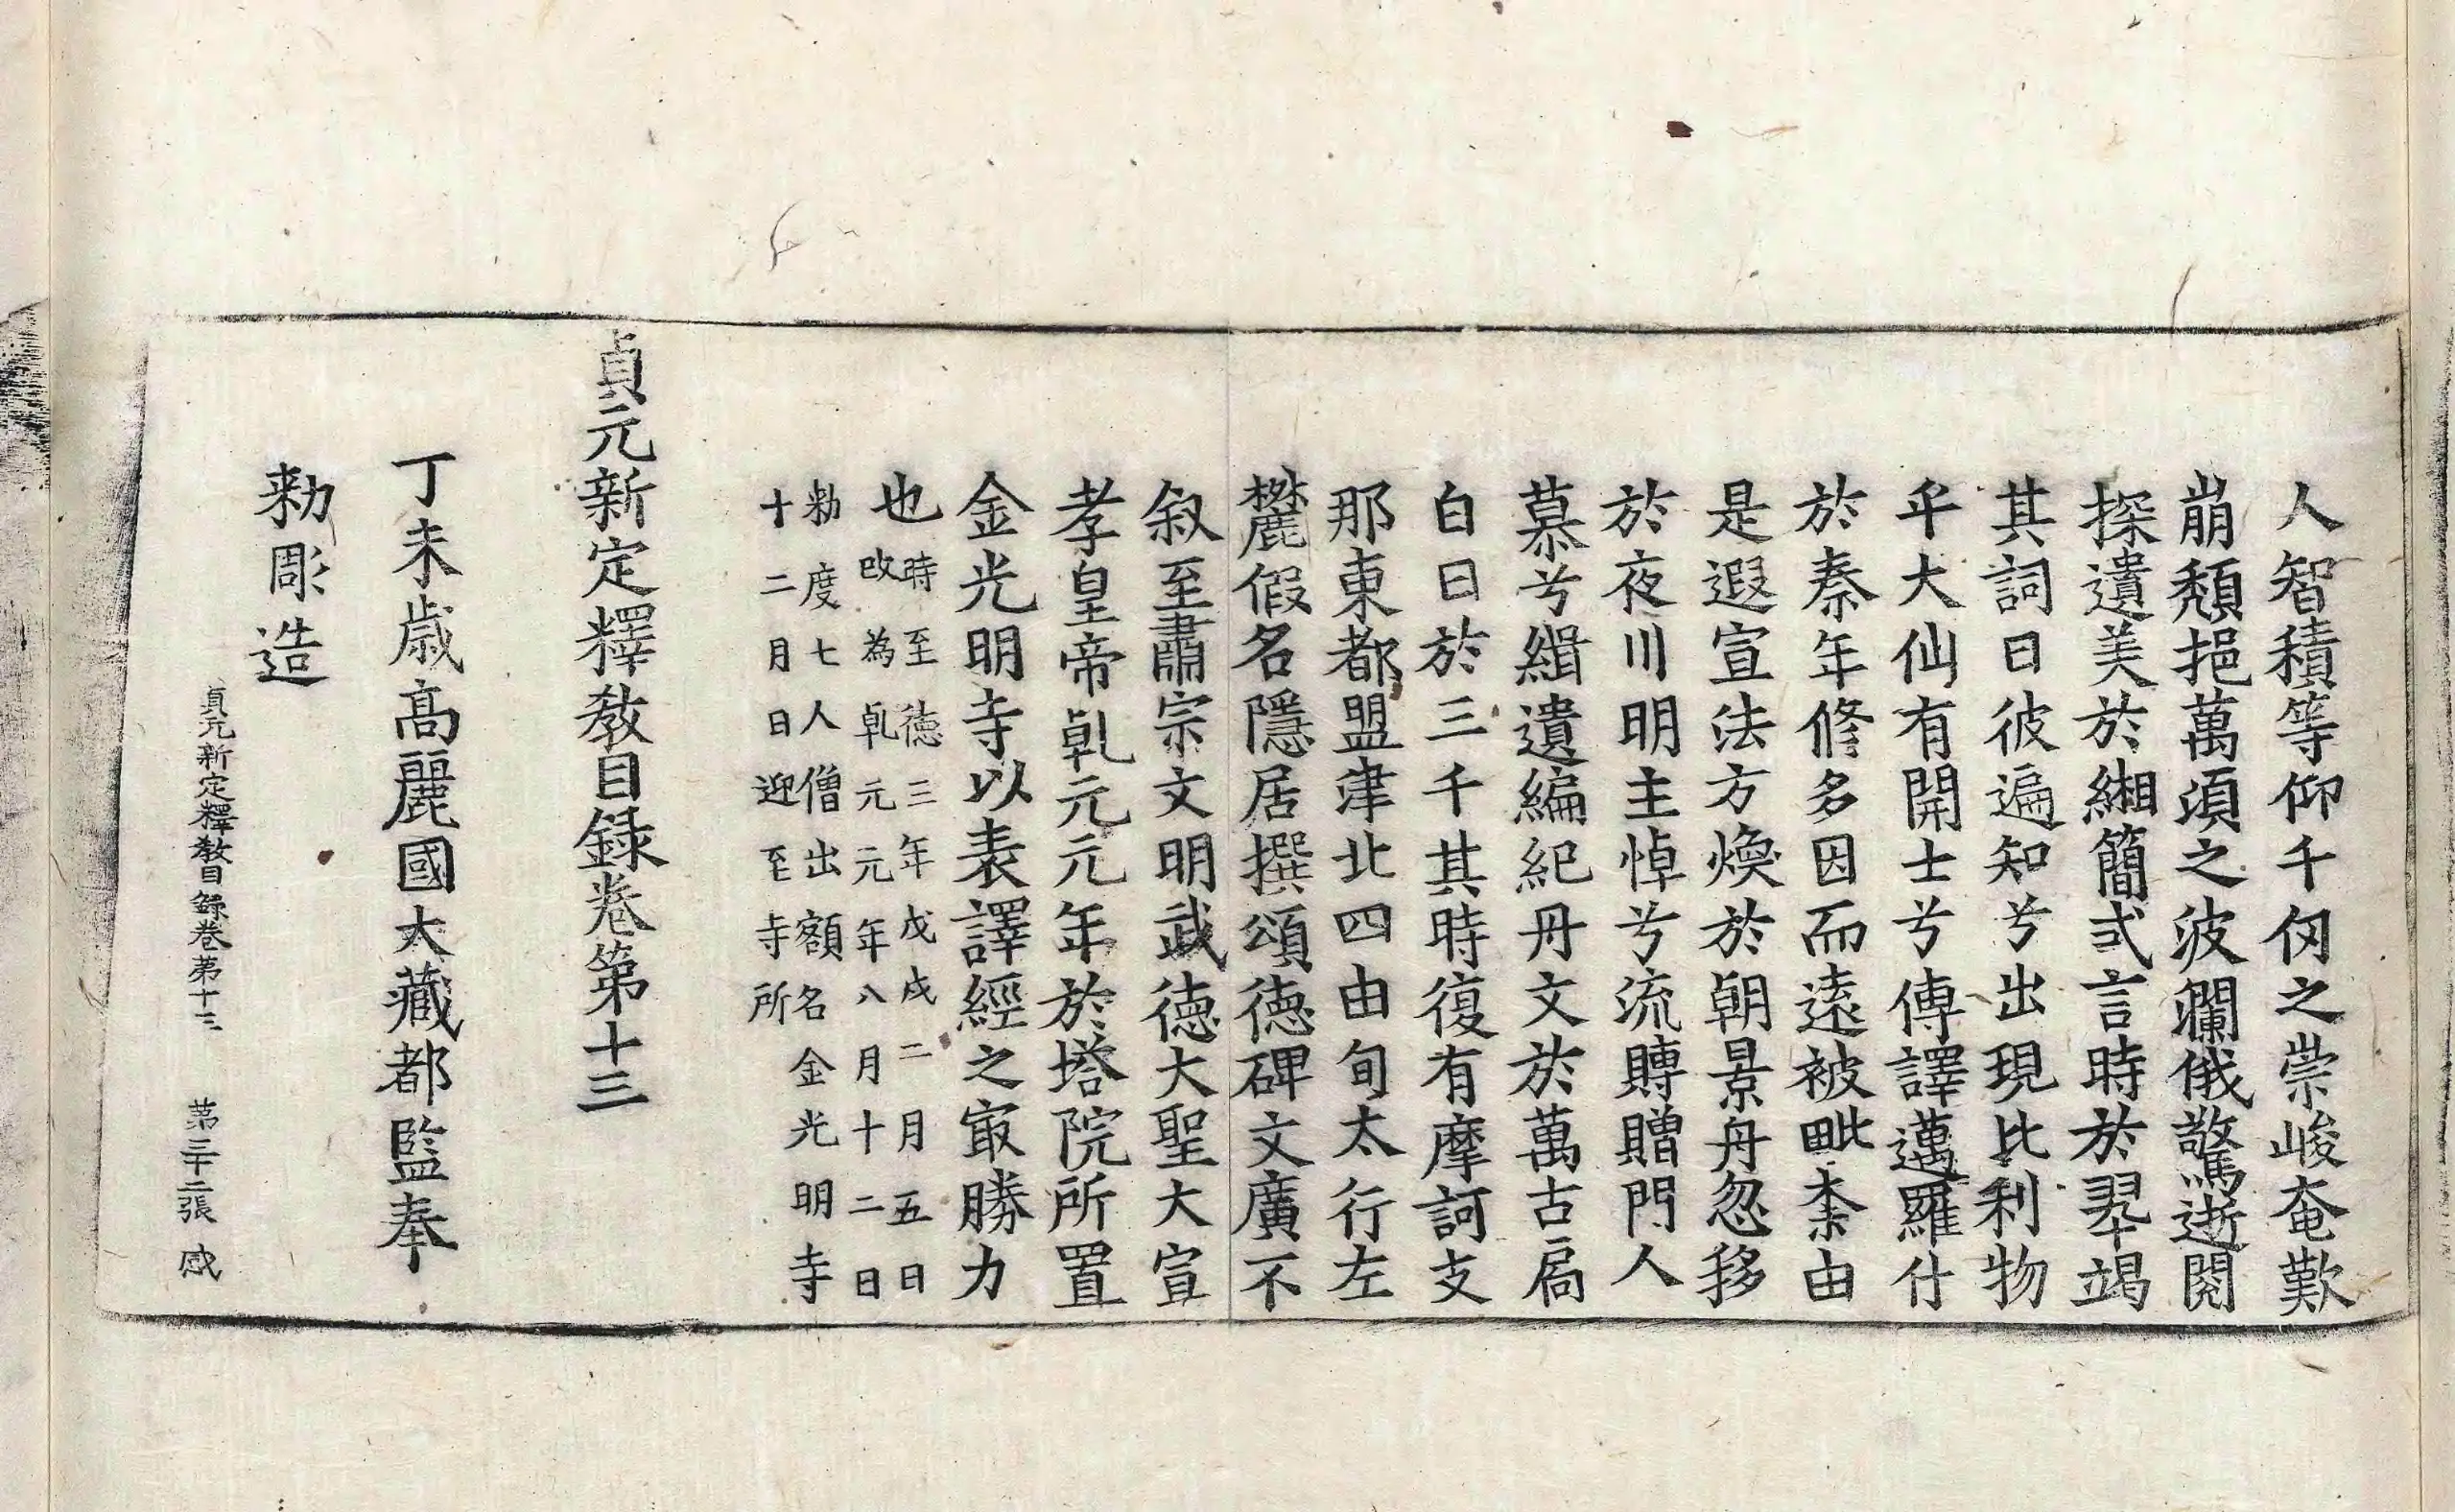 人智積等仰千仞之崇峻奄歎
崩頹挹萬湏之波瀾俄驚逝閱
採遺美於緗簡式言時於翠竭
其詞曰彼遍知兮出現比利物
乎大仙有開士兮傳譯邁羅什
於秦年修多因而遠被毗柰由
是遐宣法方煥於朝景舟忽移
於夜川明主悼兮流賻贈門人
慕兮緝遺編紀丹文於萬古扃
白日於三千其時復有摩訶支
那東都盟津北四由旬太行左
麓假名隱居撰頌德碑文廣不
叙至肅宗文明武德大聖大宣
孝皇帝乹元元年於塔院所置
金光明寺以表譯經之㝡勝力
也時至德三年戊戌二月五日
改為乹元元年八月十二日
勑度七人僧出額名金光明寺
十二月日迎至寺所
貞元新定釋教目録卷第十三
丁未歲高麗國大藏都監奉
勑彫造
貞元新定釋教目録卷第十三 第三十二張 感